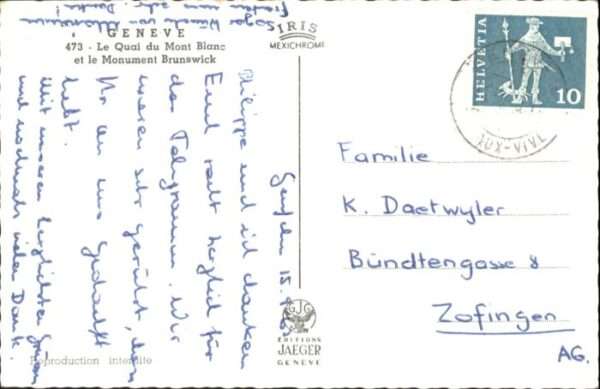 GENEVE
473 - Le Quai du Mont Blanc
et le Monument Brunswick
IRIS
MEXICHROME
HELVETIA
10
AUX-VIVE
Genf, den 15.
Philippe und ich danken
Euch recht herzlich für
das Telegramm. Wir
waren sehr gerührt, dass
Ihr an uns gedacht
habt.
Mit unseren herzlichsten Grüssen
und nochmals vielen Dank.
Familie
K. Daetwyler
Bündtengasse 8
Zofingen
AG.
EDITIONS
JAEGER
GENEVE
Reproduction interdite